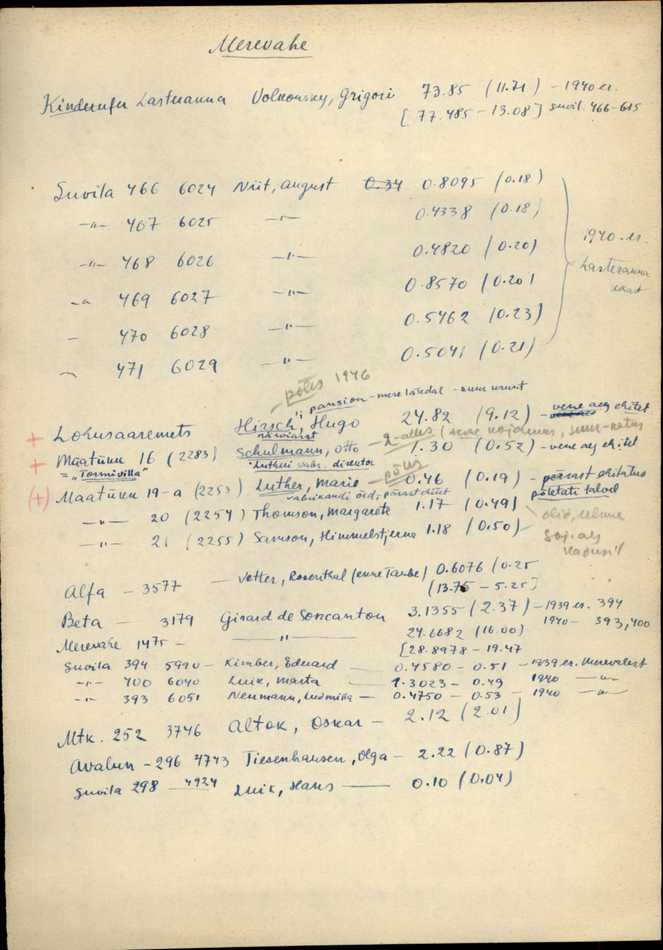 Merevahe
Kinderufer Lasteranna Volkonsky, Grigori 73.85 (11.71) – 1940 er.
[77.485 – 13.08] suvil. 466-615
Suvila 466 6024 Niit, August 0.34 0.8095 (0.18)
–"– 467 6025 –"– 0.4338 (0.18)
–"– 468 6026 –"– 0.4820 (0.20)
–" 469 6027 –"– 0.8570 (0.20)
– 470 6028 –"– 0.5462 (0.23)
– 471 6029 –"– 0.5041 (0.21)
1940. er.
Lasteranna
– põles 1946
pansion – mere läedal –
+ Lohusaaremets Hirsch, Hugo 24.82 (9.12) – vene aeg ehitet
+ Maatükk 16 (2283) Schulmann, Otto 1.30 (0.52) – vene aeg ehitet
= "Tormivilla" Lutheri vabr. direktor
– põles
(+) Maatükk 19-a (2253) Luther, Marie 0.46 (0.19) – pärast ehitatus
põletati talvel
–"– 20 (2254) Thomson, Margarete 1.17 (0.49)
–"– 21 (2255) Samson, Himmelstjerna 1.18 (0.50)
Alfa – 3577 – Vetter, Rosenthal (enne Taube) 0.6076 (0.25
(13.75 – 5.25]
Beta – 3179 Girard de Soncanton 3.1355 (2.37) – 1939 er. 394
24.6682 (16.00) 1940 – 393,400
Merevahe 1475 – –"– [28.8978 – 19.47
Suvila 394 5990 – Kimber, Eduard – 0.4580 – 0.51 – 1939 er. Merevahest
–"– 400 6040 Luik, Marta – 1.3023 – 0.49 1940 –"–
–"– 393 6051 Neumann, Ludmilla – 0.4750 – 0.53 – 1940 –"–
Mtk. 252 3746 Altok, Oskar – 2.12 (2.01)
Avalun – 296 4743 Tiesenhausen, Olga – 2.22 (0.87)
Suvila 298 – 4924 Luik, Hans – 0.10 (0.04)